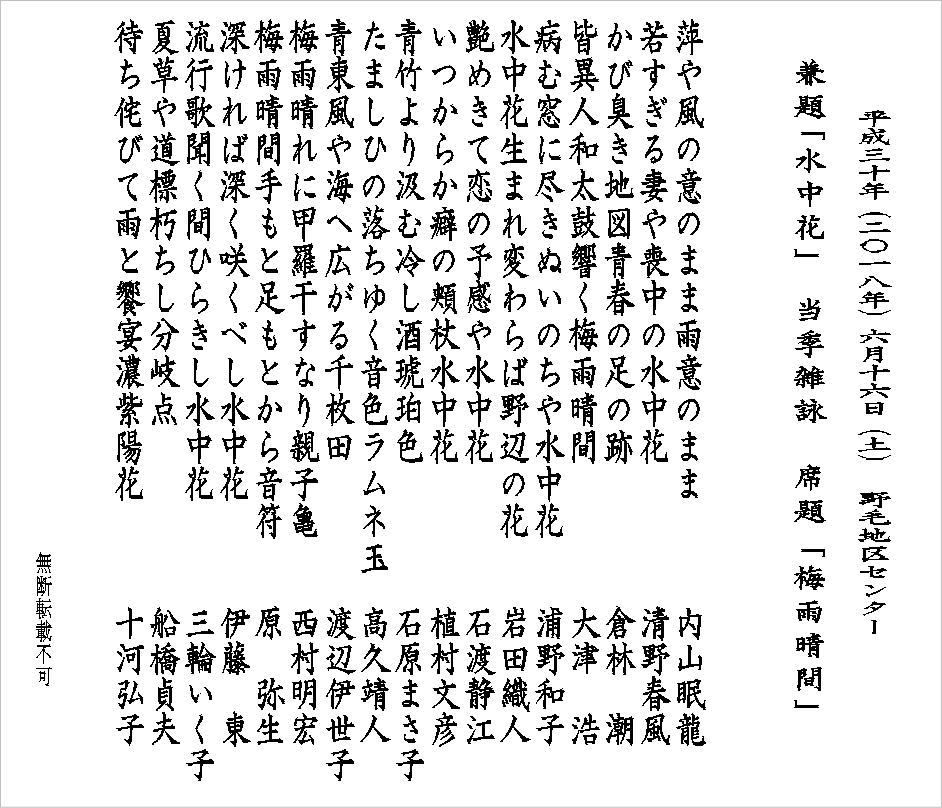 平成三十年（二〇一八年）六月十六日（土）　野毛地区センター
兼題「水中花」　当季雑詠　席題「梅雨晴間」
萍や風の意のまま雨意のまま　内山眠龍
若すぎる妻や喪中の水中花　清野春風
かび臭き地図青春の足の跡　倉林　潮
皆異人和太鼓響く梅雨晴間　大津　浩
病む窓に尽きぬいのちや水中花　浦野和子
水中花生まれ変わらば野辺の花　岩田織人
艶めきて恋の予感や水中花　石渡静江
いつからか癖の頬杖水中花　植村文彦
青竹より汲む冷し酒琥珀色　石原まさ子
たましひの落ちゆく音色ラムネ玉　高久靖人
青東風や海へ広がる千枚田　渡辺伊世子
梅雨晴れに甲羅干すなり親子亀　西村明宏
梅雨晴間手もと足もとから音符　原　弥生
深ければ深く咲くべし水中花　伊藤　東
流行歌聞く間ひらきし水中花　三輪いく子
夏草や道標朽ちし分岐点　船橋貞夫
待ち侘びて雨と饗宴濃紫陽花　十河弘子
無断転載不可